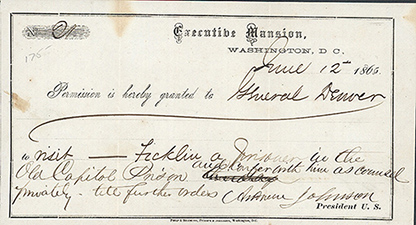 No 01
175
Executive Mansion,
WASHINGTON, D. C.
June 12th 1865.
Permission is hereby granted to General Denver
to visit — Ficklin a prisoner in the
Old Capitol Prison and confer with him as counsel
privately - till further orders Andrew Johnson
President U. S.